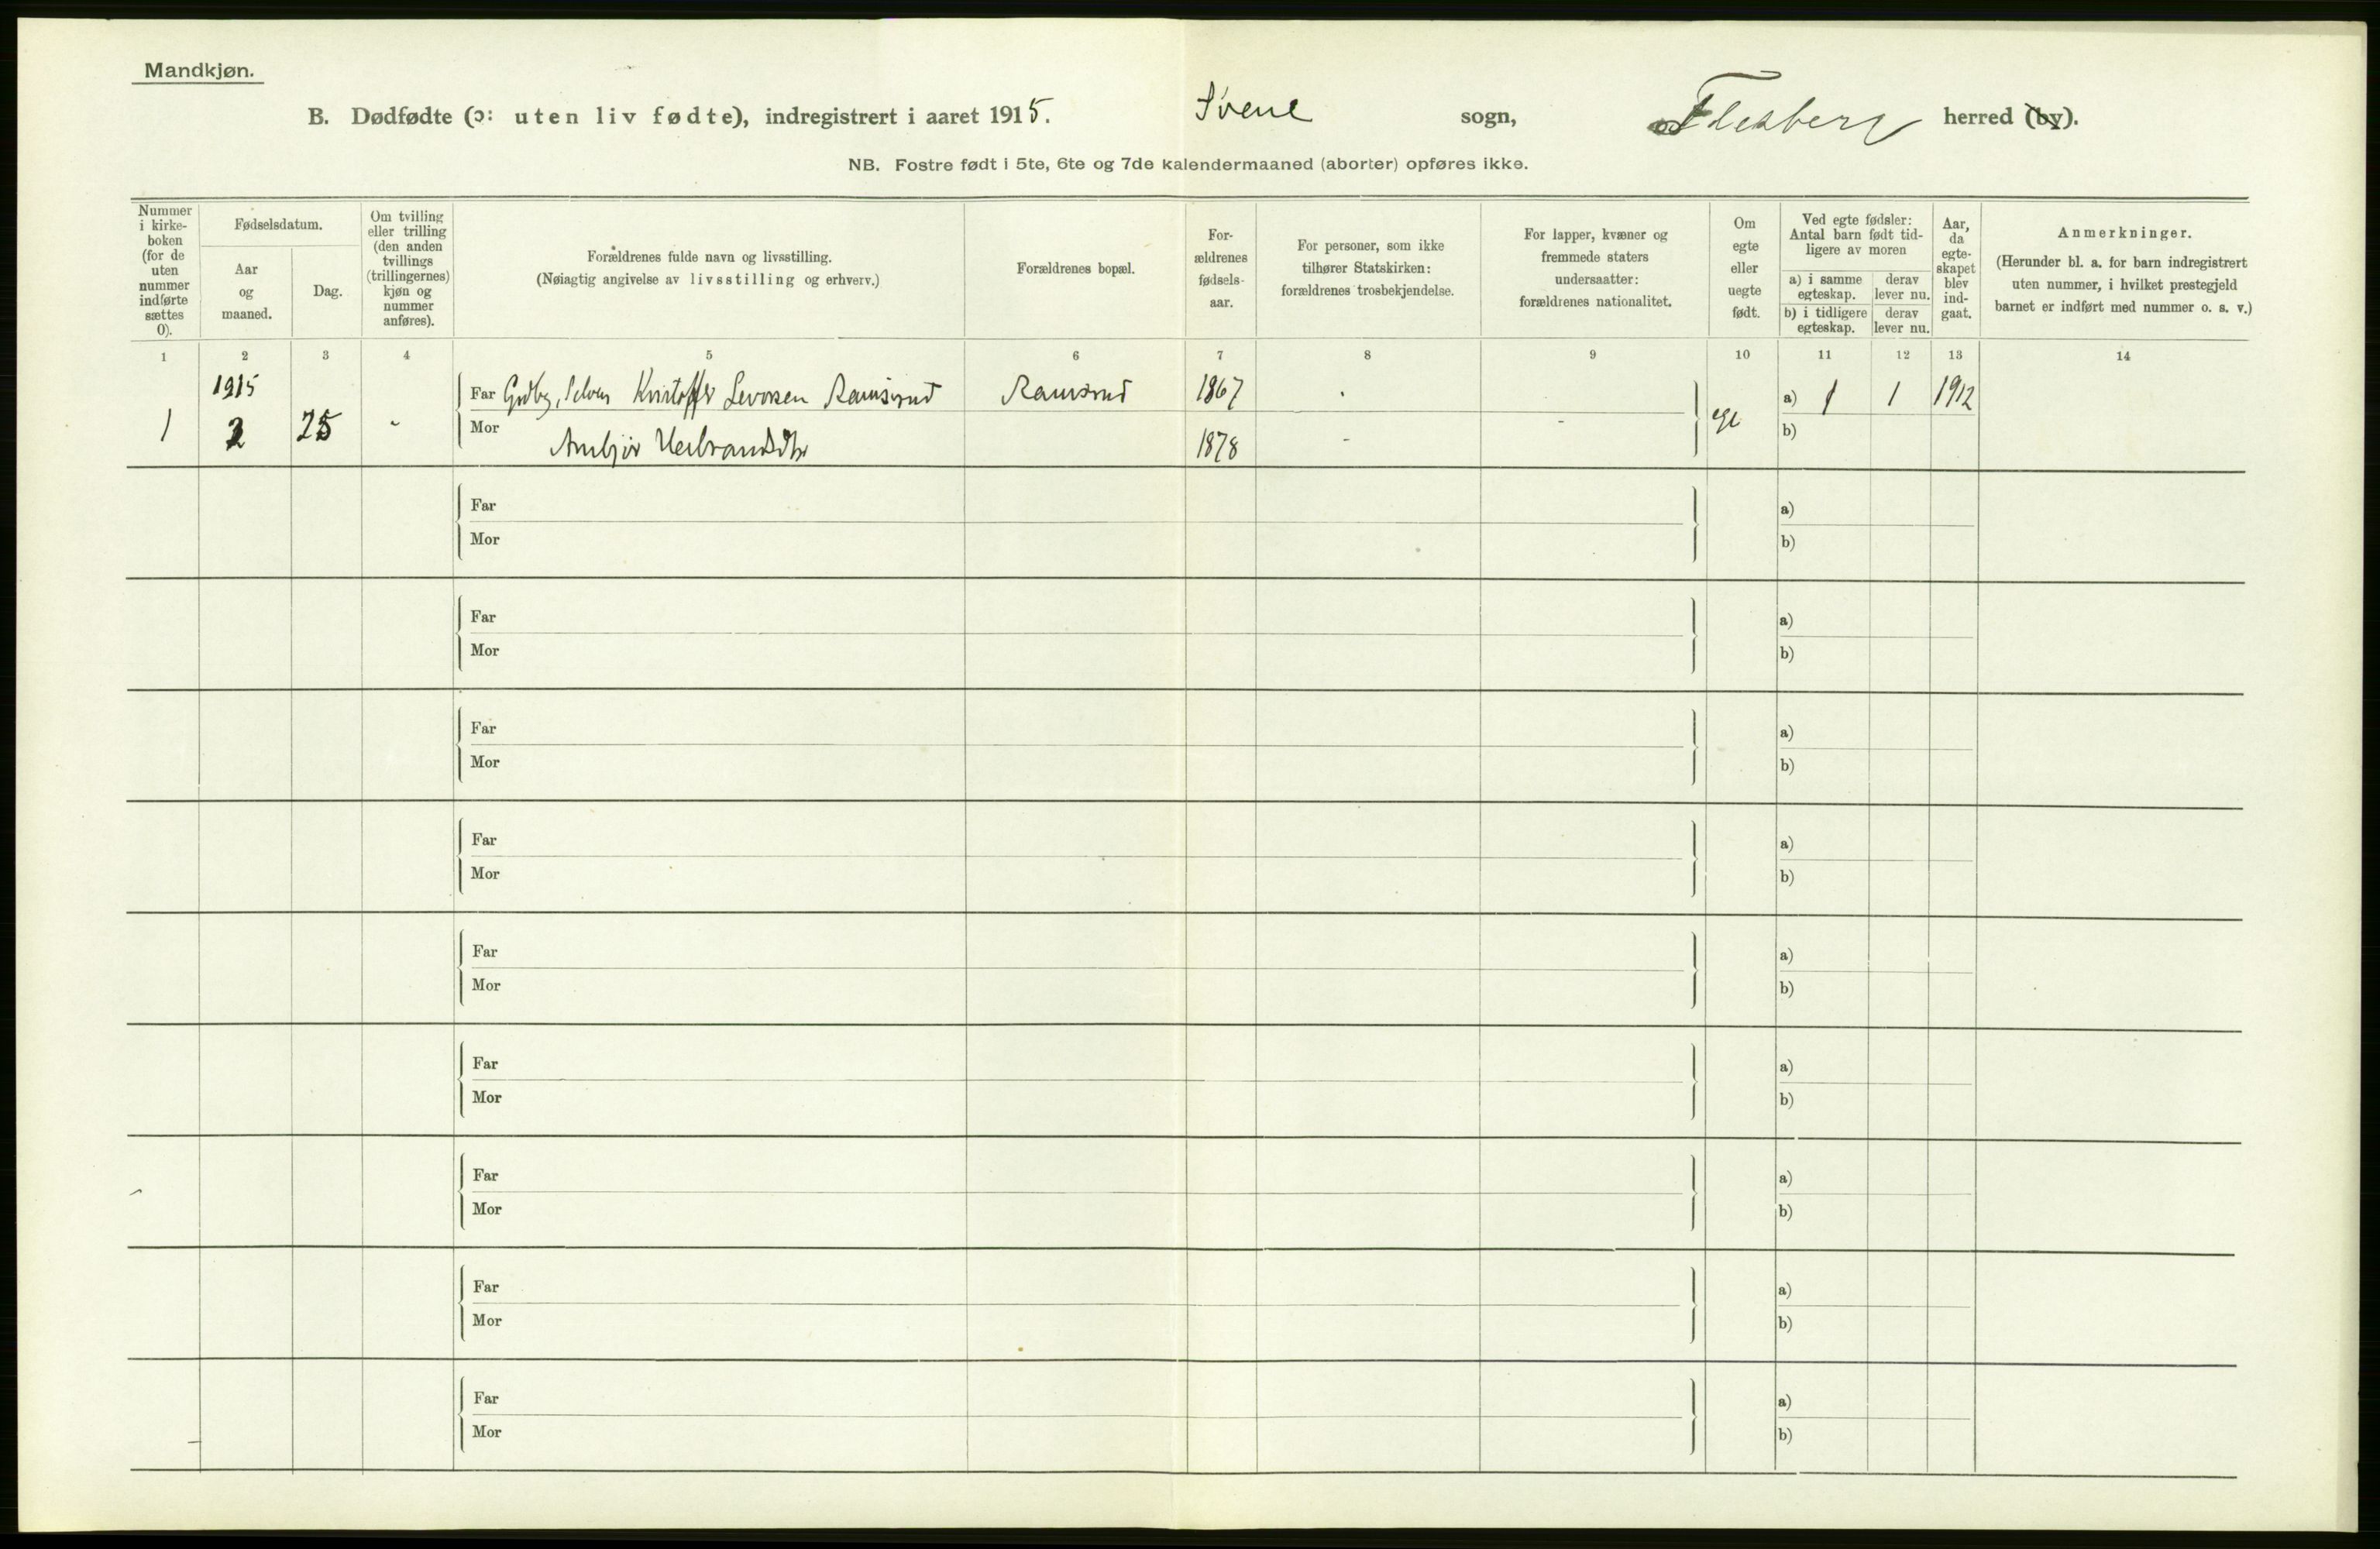 Mandkjøn.
B. Dødfødte (ɔ: uten liv fødte), indregistrert i aaret 1915. Svene sogn, Flesberg herred (by).
NB. Fostre født i 5te, 6te og 7de kalendermaaned (aborter) opføres ikke.
Nummer i kirke- boken (for de uten nummer indførte sættes 0).
Fødselsdatum.
Aar og maaned.
Dag.
Om tvilling eller trilling (den anden tvillings (trillingernes) kjøn og nummer anføres).
Forældrenes fulde navn og livsstilling.
(Nøiagtig angivelse av livsstilling og erhverv.)
Forældrenes bopæl.
For- ældrenes fødsels- aar.
For personer, som ikke tilhører Statskirken: forældrenes trosbekjendelse.
For lapper, kvæner og fremmede staters undersaatter: forældrenes nationalitet.
Om egte eller uegte født.
Ved egte fødsler: Antal barn født tid- ligere av moren
a) i samme egteskap. derav lever nu.
b) i tidligere egteskap. derav lever nu.
Aar, da egte- skapet blev ind- gaat.
Anmerkninger.
(Herunder bl. a. for barn indregistrert uten nummer, i hvilket prestegjeld barnet er indført med nummer o. s. v.)
1 2 3 4 5 6 7 8 9 10 11 12 13 14
1915
Far Grdbr, Selveier Kristoffer Levorsen Ramsrud Ramsrud 1867 a) 1 1 1912
1 2 25 - Mor Anbjør Herbrandsdtr 1878 - - egte b)
Far a)
Mor b)
Far a)
Mor b)
Far a)
Mor b)
Far a)
Mor b)
Far a)
Mor b)
Far a)
Mor b)
Far a)
Mor b)
Far a)
Mor b)
Far a)
Mor b)